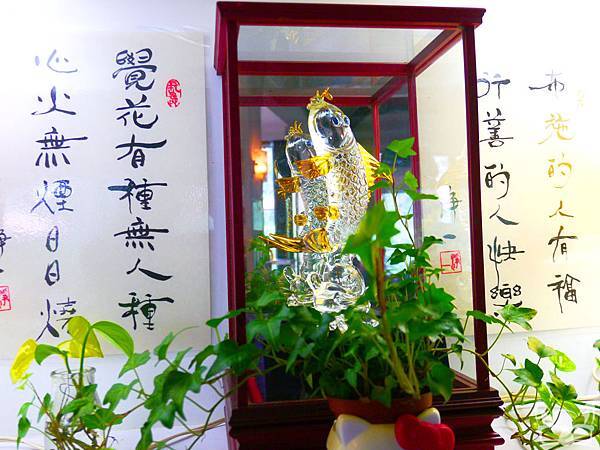 覺花有種無人種
心火無煙日日燒
布施的人有福
行善的人快樂